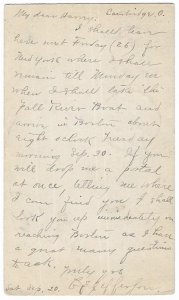 My dear Harry: Cambridge, O.
I shall leave
here next Friday (26) for
New York where I shall
remain till Monday eve
when I shall take the
Fall River Boat and
arrive in Boston about
eight o'clock Tuesday
morning Sep. 30. If you
will drop me a postal
at once, telling me where
I can find you I shall
look you up immediately on
reaching Boston as I have
a great many questions
to ask.
Sat. Sep. 20.